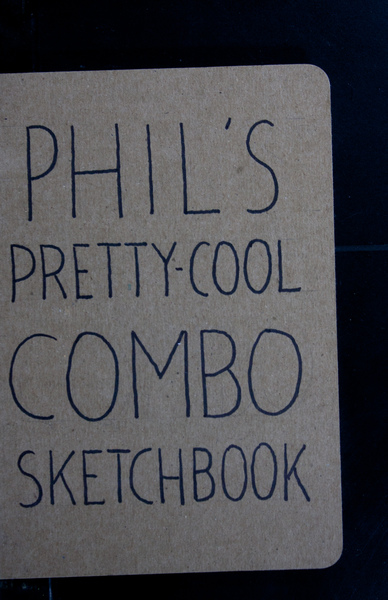 PHIL'S
PRETTY-COOL
COMBO
SKETCHBOOK